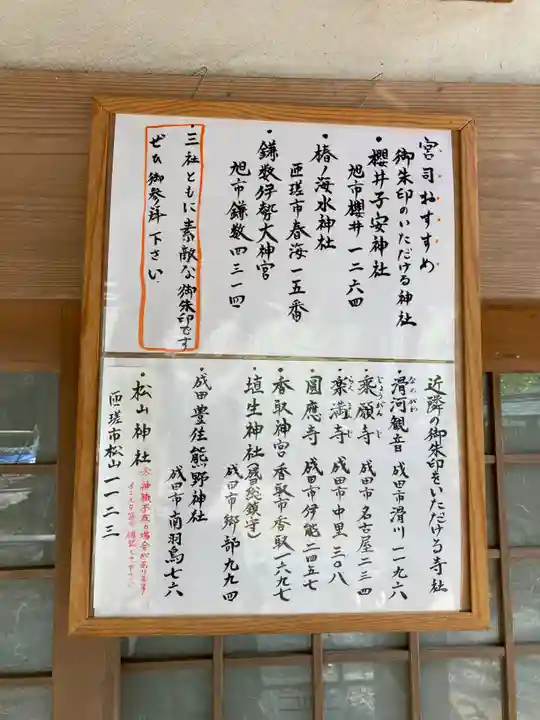 宮司おすすめ
御朱印のいただける神社
・櫻井子安神社
旭市櫻井一二六四
・椿ノ海水神社
匝瑳市春海一五番
・鎌数伊勢大神宮
旭市鎌数四三一四
・三社ともに素敵な御朱印です
ぜひ御参拝下さい
近隣の御朱印をいただける寺社
なめがわ
・滑河観音 成田市滑川一一九六
じょうがんじ
・乗願寺 成田市名古屋二三四
らくまんじ
・楽満寺 成田市中里三〇八
・圓應寺 成田市伊能二四五七
・香取神宮 香取市香取一六九七
・埴生神社(醫総鎮守)
成田市郷部九九四
・成田豊住熊野神社
成田市南羽鳥七六
・松山神社
匝瑳市松山一一二三